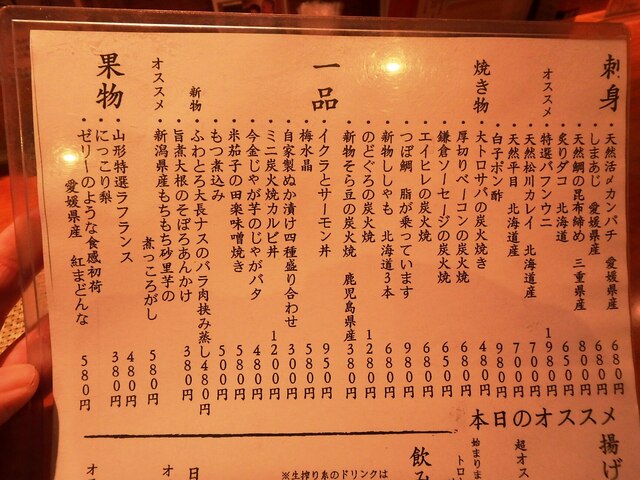 刺身
・天然活〆カンパチ 愛媛県産 680円
・しまあじ 愛媛県産 680円
・天然鯛の昆布締め 三重県産 800円
・炙りダコ 北海道 650円
オススメ
・特選バフンウニ 1980円
・天然松川カレイ 北海道産 700円
・天然平目 北海道産 700円
・白子ポン酢 980円
焼き物
・大トロサバの炭火焼き 480円
・厚切りベーコンの炭火焼 680円
・鎌倉ソーセージの炭火焼 650円
・エイヒレの炭火焼 680円
・つぼ鯛 脂が乗っています 980円
・新物ししゃも 北海道3本 680円
・のどぐろの炭火焼 1280円
・新物そら豆の炭火焼 鹿児島県産 380円
一品
・イクラとサーモン丼 950円
・梅水晶 580円
・自家製ぬか漬け四種盛り合わせ 300円
・ミニ炭火焼カルビ丼 1200円
・今金じゃが芋のじゃがバタ 480円
・米茄子の田楽味噌焼き 580円
・もつ煮込み 500円
新物
・ふわとろ大長ナスのバラ肉挟み蒸し 480円
・旨煮大根のそぼろあんかけ 380円
オススメ
・新潟県産もちもち砂里芋の
煮っころがし 580円
果物
・山形特選ラフランス 480円
・にっこり梨 380円
・ゼリーのような食感初荷
愛媛県産 紅まどんな 580円
本日のオススメ
揚げ
超オス
始まりま
トロ
飲み
※生搾り糸のドリンクは
日
オ
オス